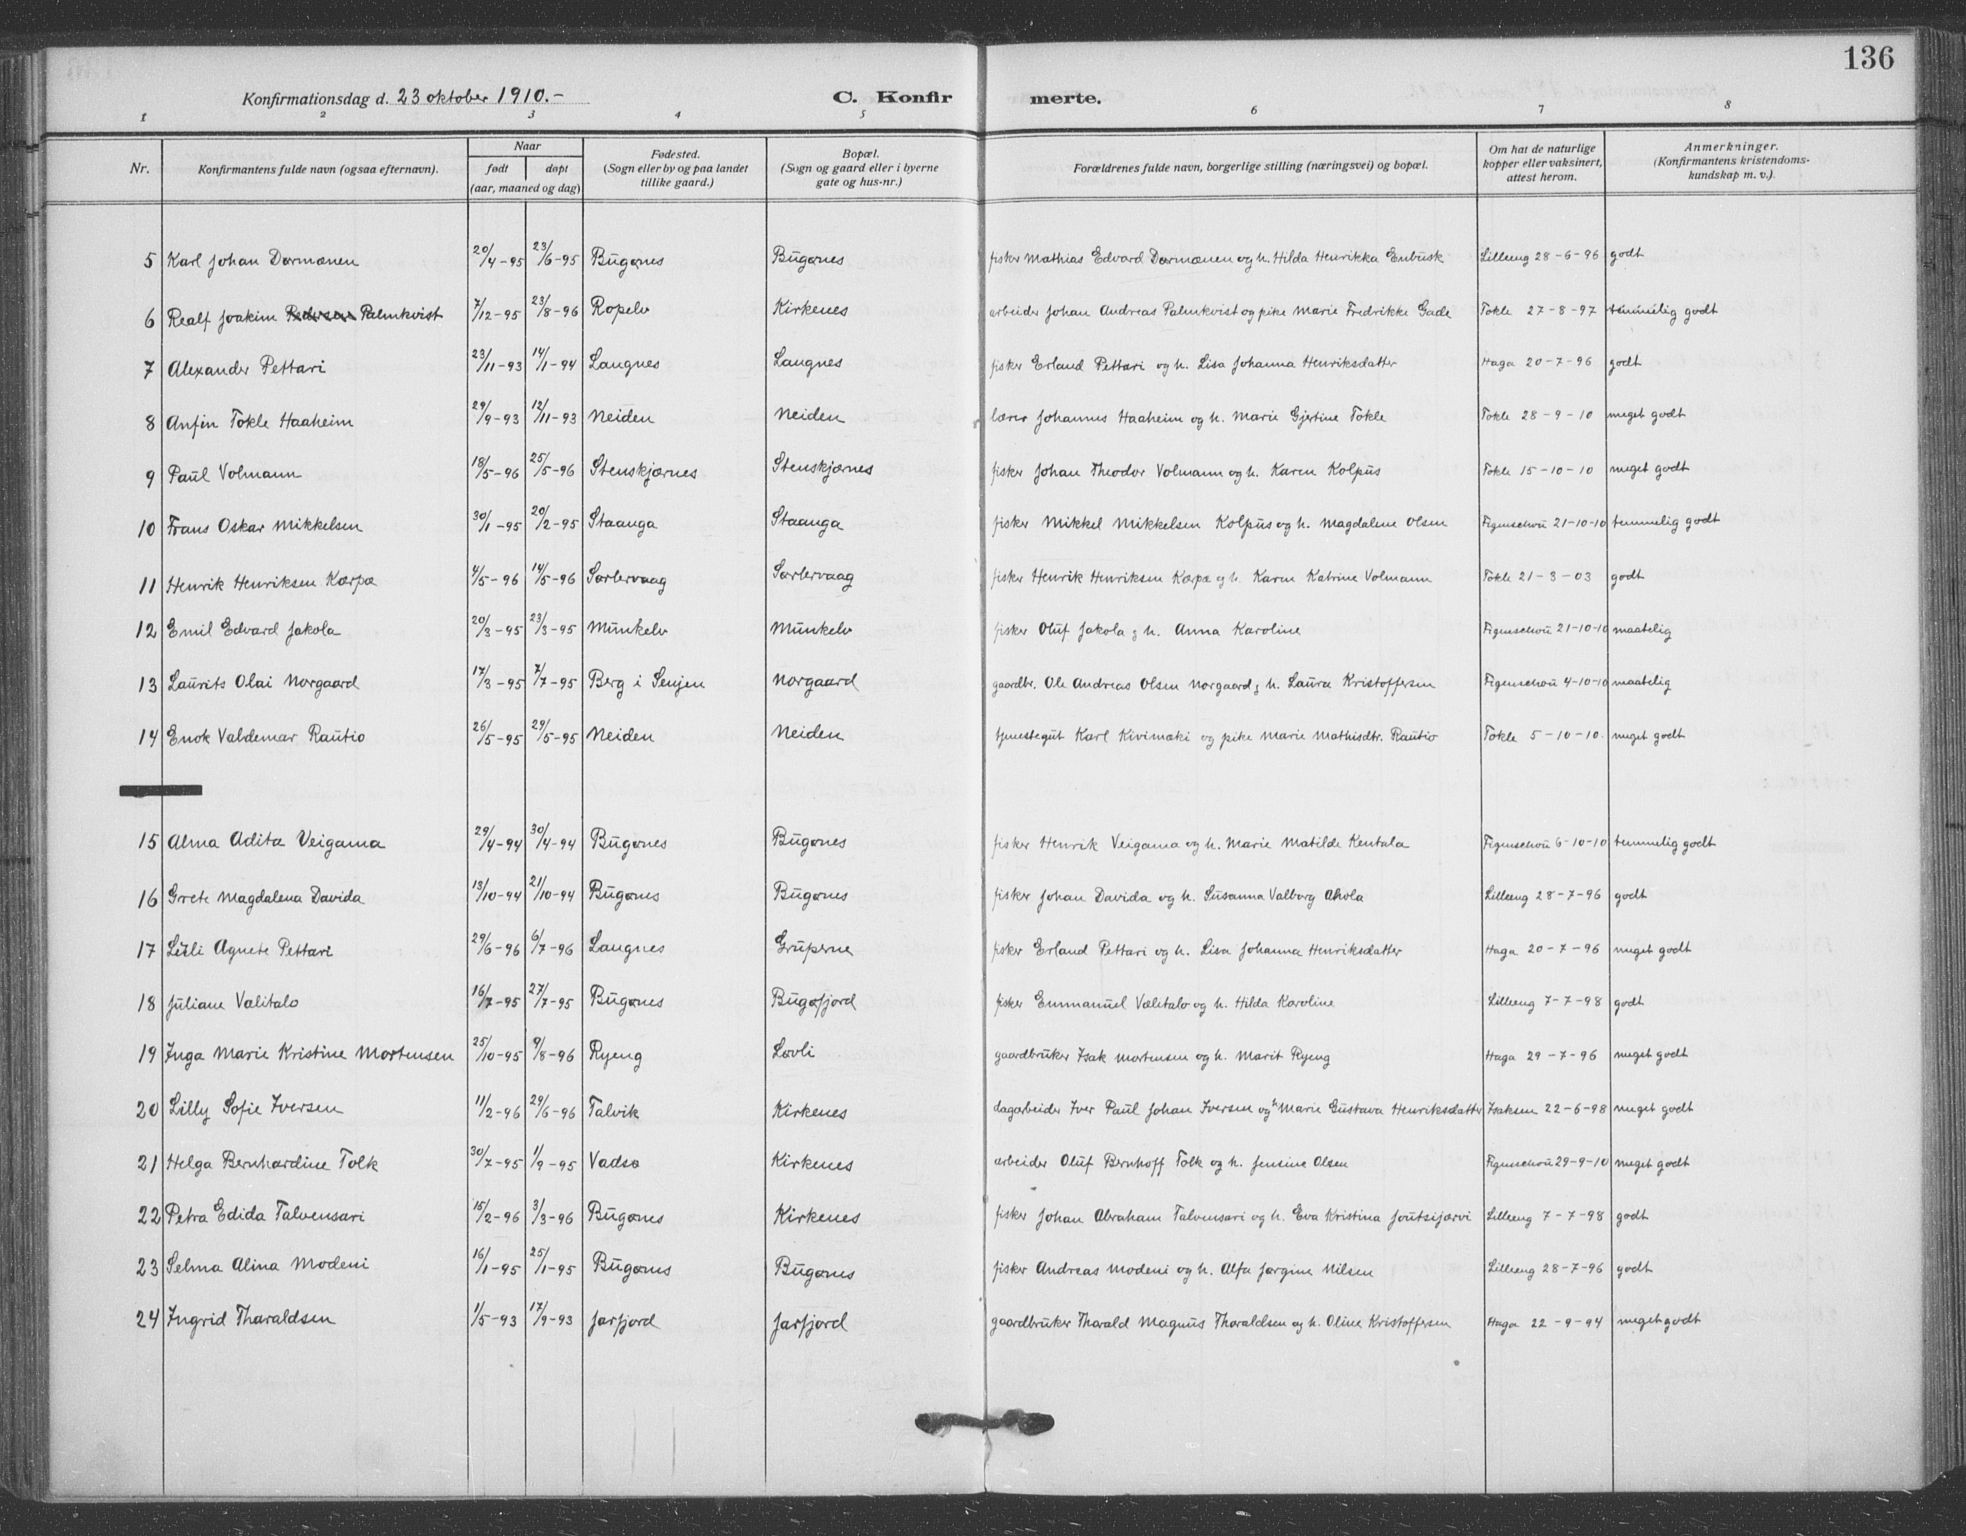 136
Konfirmationsdag d. 23 oktober 1910.-
C. Konfirmerte.
1 2 3 4 5 6 7 8
Nr. | Konfirmantens fulde navn (ogsaa efternavn). | Naar født døpt (aar, maaned og dag) | Fødested. (Sogn eller by og paa landet tillike gaard.) | Bopæl. (Sogn og gaard eller i byerne gate og hus-nr.) | Forældrenes fulde navn, borgerlige stilling (næringsvei) og bopæl. | Om hat de naturlige kopper eller vaksinert, attest herom. | Anmerkninger. (Konfirmantens kristendomskundskap m. v.).
5 Karl Johan Dørmænen 20/4-95 23/6-95 Bugønes Bugønes fisker Mathias Edvard Dørmænen og h. Hilda Henrikka Enbusk Lilleeng 28-6-96 godt
6 Realf Joakim Palmkvist 7/12-95 23/8-96 Ropelv Kirkenes arbeider Johan Andreas Palmkvist og pike Marie Fredrikke Gade Tokle 27-8-97 temmelig godt
7 Alexander Pettari 23/11-93 14/1-94 Langnes Langnes fisker Erland Pettari og h. Lisa Johanna Henriksdatter Haga 20-7-96 godt
8 Anfin Tokle Haaheim 29/9-93 12/11-93 Neiden Neiden lærer Johannes Haaheim og h. Marie Gjertine Tokle Tokle 28-9-10 meget godt
9 Paul Volmann 18/5-96 25/5-96 Stenskjærnes Stenskjærnes fisker Johan Theodor Volmann og h. Karen Kolpus Tokle 15-10-10 meget godt
10 Frans Oskar Mikkelsen 30/1-95 20/2-95 Staanga Staanga fisker Mikkel Mikkelsen Kolpus og h. Magdalene Olsen Figenschou 21-10-10 temmelig godt
11 Henrik Henriksen Kærpæ 4/5-96 14/5-96 Sørlervaag Sørlervaag fisker Henrik Henriksen Kærpæ og h. Karen Katrine Volmann Tokle 21-3-03 godt
12 Emil Edvard Jakola 20/3-95 23/3-95 Munkelv Munkelv fisker Oluf Jakola og h. Anna Karoline Figenschou 21-10-10 maatelig
13 Laurits Olai Norgaard 17/3-95 7/7-95 Berg i Senjen Norgaard gaardbr. Ole Andreas Olsen Norgaard og h. Laura Kristoffersen Figenschou 4-10-10 maatelig
14 Enok Valdemar Rautio 26/5-95 29/5-95 Neiden Neiden tjenestegut Karl Kivimæki og pike Marie Mathisdtr. Rautio Tokle 5-10-10. meget godt
15 Alma Adita Veigama 29/4-94 30/4-94 Bugønes Bugønes fisker Henrik Veigama og h. Marie Matilde Kentala Figenschou 6-10-10 temmelig godt
16 Grete Magdalena Davida 13/10-94 21/10-94 Bugønes Bugønes fisker Johan Davida og h. Susanna Valborg Ahola Lilleeng 28-7-96 godt
17 Lisli Agnete Pettari 29/6-96 6/7-96 Langnes Gruperne fisker Erland Pettari og h. Lisa Johanna Henriksdatter Haga 20-7-96 meget godt
18 Juliane Vælitalo 16/7-95 27/7-95 Bugønes Bugøfjord fisker Emmanuel Vælitalo og h. Hilda Karoline Lilleeng 7-7-98 godt
19 Inga Marie Kristine Mortensen 25/10-95 9/8-96 Ryeng Løvli gaardbruker Isak Mortensen og h. Marit Ryeng Haga 29-7-96 meget godt
20 Lilly Sofie Iversen 11/2-96 29/6-96 Talvik Kirkenes dagarbeider Iver Paul Johan Iversen og h. Marie Gustava Henriksdatter Isaksen 22-6-98 meget godt
21 Helga Bernhardine Tolk 30/7-95 1/9-95 Vadsø Kirkenes arbeider Oluf Bernhoff Tolk og h. Jensine Olsen Figenschou 29-9-10 meget godt
22 Petra Edida Talvensari 15/2-96 3/3-96 Bugønes Kirkenes fisker Johan Abraham Talvensari og h. Eva Kristina Joutsijærvi Lilleeng 7-7-98 godt
23 Selma Alina Modeni 16/1-95 25/1-95 Bugønes Bugønes fisker Andreas Modeni og h. Alfa Jørgine Nilsen Lilleeng 28-7-96 godt
24 Ingrid Tharaldsen 1/5-93 17/9-93 Jarfjord Jarfjord gaardbruker Tharald Magnus Tharaldsen og h. Oline Kristoffersen Haga 22-9-94 meget godt